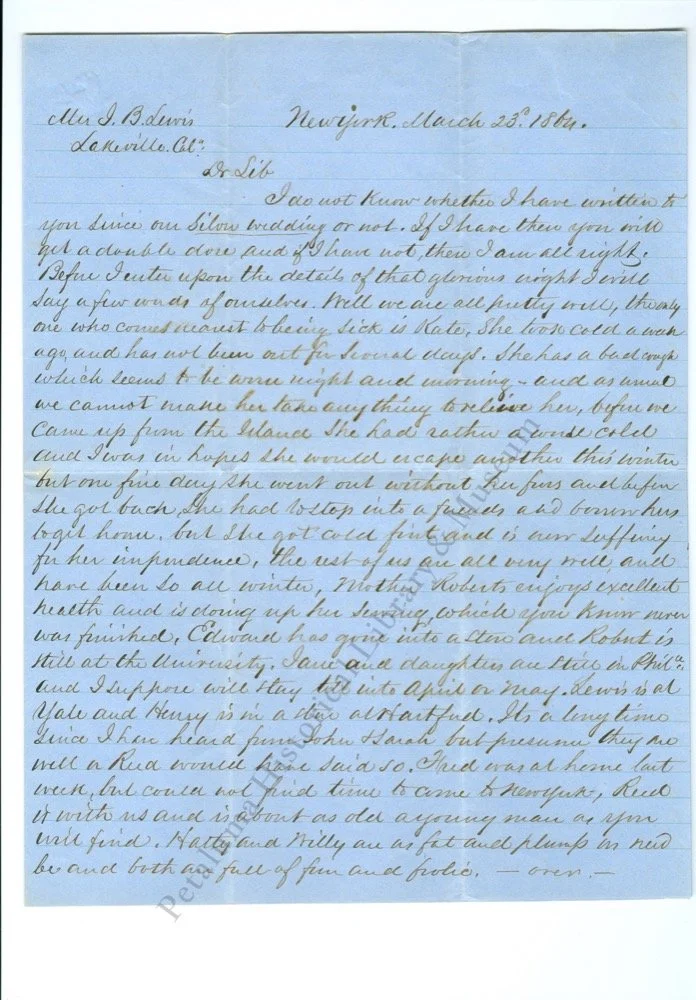 Mrs J. B. Lewis
New York. March 23d. 1864.
Lakeville. Cala
Dr Lib
I do not know whether I have written to
you since our Silver wedding or not. If I have then you will
get a double dose and if I have not, then I am all right.
Before I enter upon the details of that glorious night I will
say a few words of ourselves. Well we are all pretty well, the only
one who comes nearest to being sick is Kate, She took cold a week
ago, and has not been out for several days. She has a bad cough
which seems to be worse night and morning - and as usual
we cannot make her take any thing to relieve her, before we
came up from the Island She had rather a worse cold
and I was in hopes she would escape another this winter
but one fine day she went out without her furs and before
She got back, She had to stop into a friends and borrow hers
to get home. but She got cold first and is now suffering
for her imprudence, the rest of us are all very well and
have been So all winter, Mother Roberts enjoys excellent
health and is doing up her sewing which you know never
was finished, Edward has gone into a store and Robert is
still at the University. Jane and daughters are still in Phila.
and I suppose will stay till into April or May. Lewis is at
Yale and Henry is in a store at Hartford. Its a long time
since I have heard from John & Sarah but presume they are
well or Reed would have said so. Fred was at home last
week, but could not find time to come to New York, Reed
is with us and is about as old a young man as you
will find. Hatty and Willy are as fat and plump as need
be and both are full of fun and frolic. — over. —
Petaluma Historical Library & Museum